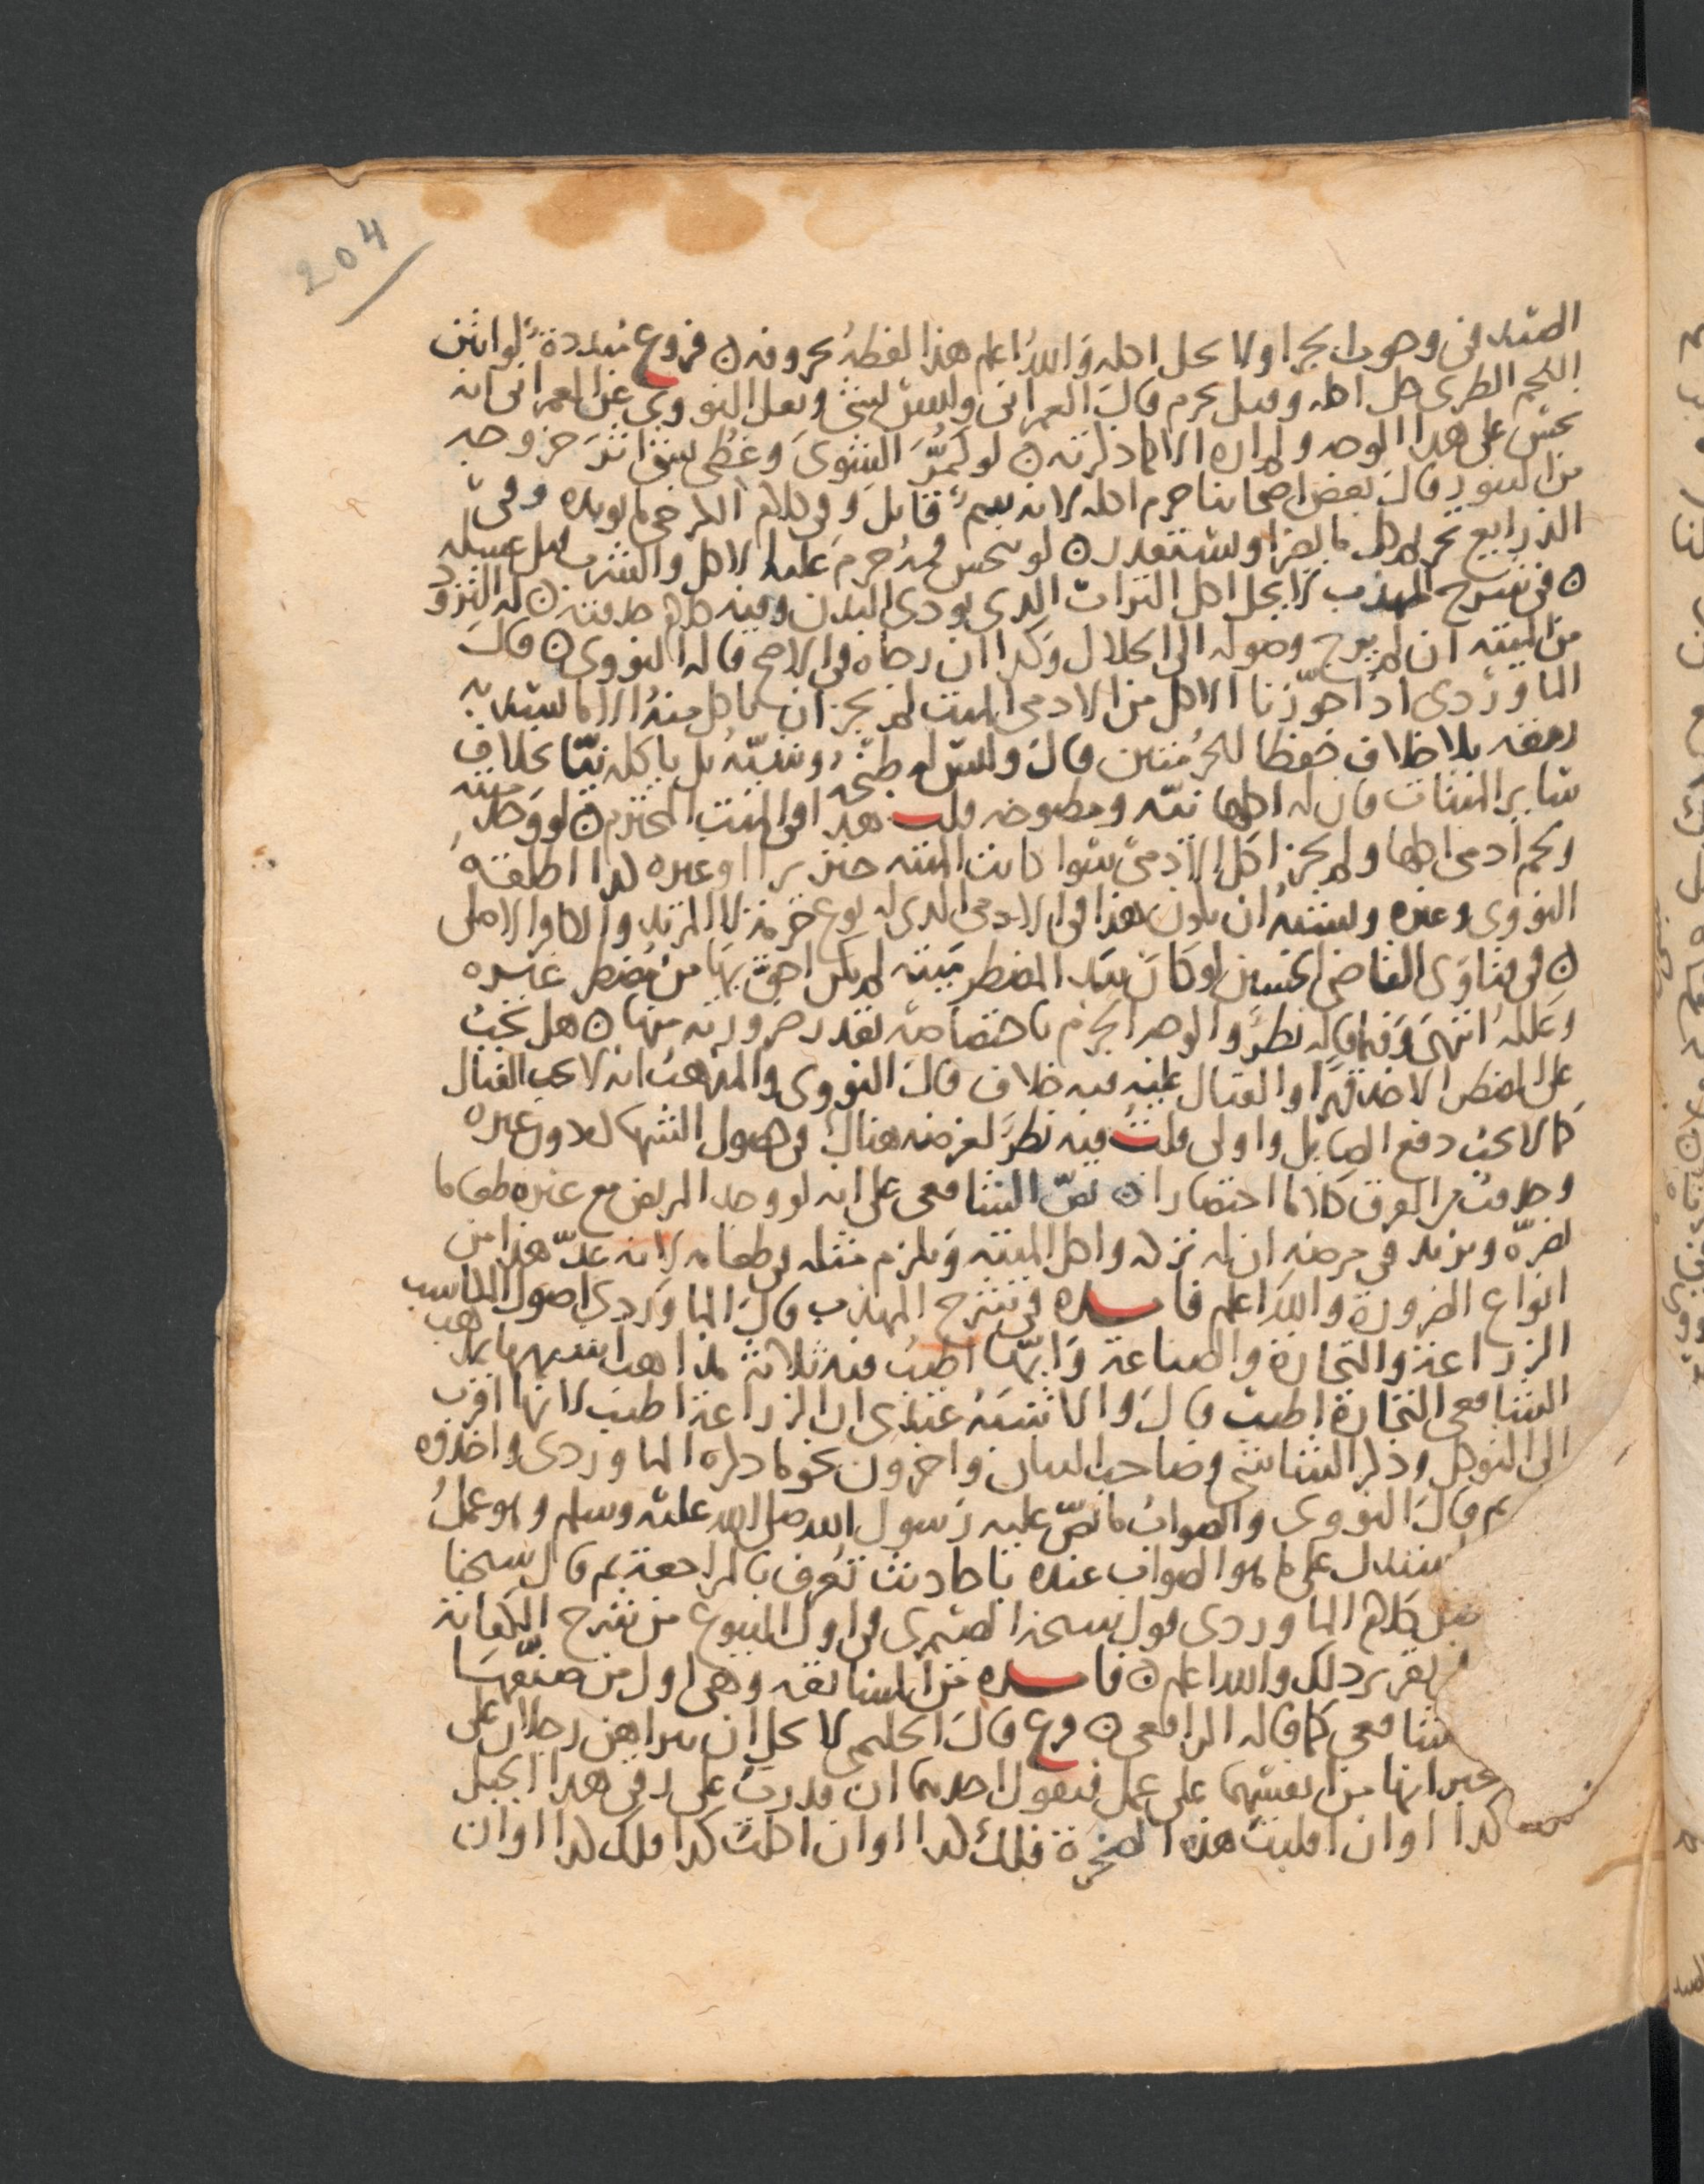 204
الصيد في وجوب الجزا ولا يحل اكله والله اعلم هذا لفظه بحروفه ن فروع مبددة لو انتن
اللحم الطرى حل اكله وقيل يحرم قال العمرانى وليس بشى ونقل النووى عن العمرانى انه
نجس على هذا الوجه ولم اره الا كما ذكرته ن لو الشوى وغطى خروجه
من التنور قال بعض اصحابنا حرم اكله لانه سم قاتل وفى كلام ما يويده وفى
الذرايع تحريم كل ما يضر او يستقذر ن لو تنجس فمه حرم عليه الاكل والشرب قبل غسله
ن فى شرح المهذب لا يحل اكل التراب الذى يوذى البدن وفيه كلام ن له التزود
من الميتة ان لم يرج وصوله الى الحلال وكذا ان رجاه فى الاصح قاله النووى ن قال
الماوردى اذا جوزنا الاكل من الادمى الميت لم يجز ان ياكل منه الا ما يسد به
رمقه بلا خلاف حفظا للحرمتين قال وليس له طبخه وشيه بل ياكله نيا بخلاف
ساير الميتات فان له اكلها نيه ومطبوخه قلت هذا فى الميت المحترم ن لو وجد ميتة
ولحم ادمى اكلها ولم يجز اكل الادمى سوا كانت الميتة خنزيرا او غيره كذا اطلقه
النووى وغيره ويشبه ان يكون هذا فى الادمى الذى له نوع حرمة لا المرتد والكافر الاصلى
ن فى فتاوى القاضى الحسين لو كان بيد المضطر ميتة لم يكن احق بها من مضطر غيره
وعلله انتهى وفيما قاله نظر والوجه الجزم باختصاصه بقدر ضرورته منها ن هل يجب
على المضطر الاخذ قهرا والقتال عليه فيه خلاف قال النووى والمذهب انه لا يجب القتال
كما لا يجب دفع الصايل واولى قلت فيه نظر لغرضه هناك فى حصول الشهادة دون غيره
وحذفت من الفرق كلاما اختصارا ن نص الشافعى على انه لو وجد المريض مع غيره طعاما
يضره ويزيد فى مرضه ان له تركه واكل الميتة ويلزم مثله فى طعامه لانه عد هذا من
انواع الضرورة والله اعلم فايــــدة فى شرح المهذب قال الماوردى اصول المكاسب
الزراعة والتجارة والصناعة وايها اطيب فيه ثلاثة مذاهب اشبهها بمذهب
الشافعى التجارة اطيب قال والاشبه عندى ان الزراعة اطيب لانها اقرب
الى التوكل وذكر الشاشى وصاحب البيان واخرون نحو ما ذكره الماوردى واخذوه
ثم قال النووى والصواب ما نص عليه رسول الله صلى الله عليه وسلم وهو عمل
استدل على ما هو الصواب عنده باحاديث تعرف بالمراجعة ثم قال شيخنا
كلام الماوردى قول شيخه الصيمرى فى اول البيوع من شرح الكفاية
تقرير ذلك والله اعلم ن فايــــدة من المسابقة وهى اول من صنفها
شافعى كما قاله الرافعى ن فرع قال الحليمى لا يحل ان يتراهن رجلان على
انها من انفسهما على عمل فيقول احدهما ان قدرت على رقى هذا الجبل
كذا او ان اقلبت هذه الصخرة فلك كذا او ان اكلت كذا فلك كذا او ان